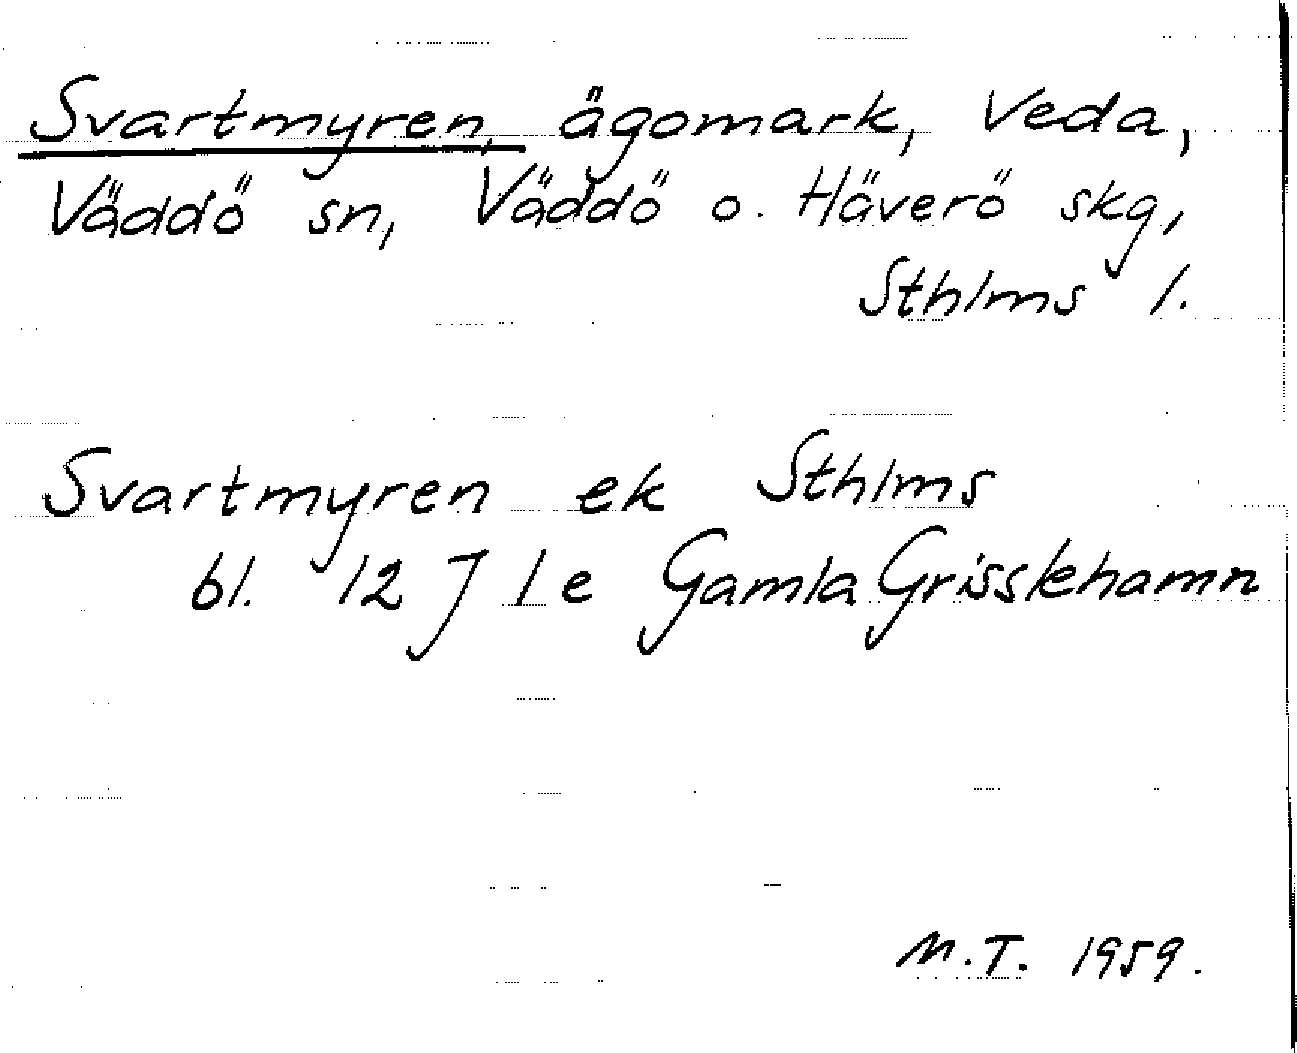 Svartmyren, ägomark, Veda,
Väddö sn, Väddö o. Häverö skg,
Sthlms l.
Svartmyren ek Sthlms
bl. 12 J 1 e Gamla Grisslehamn
M.T. 1959.